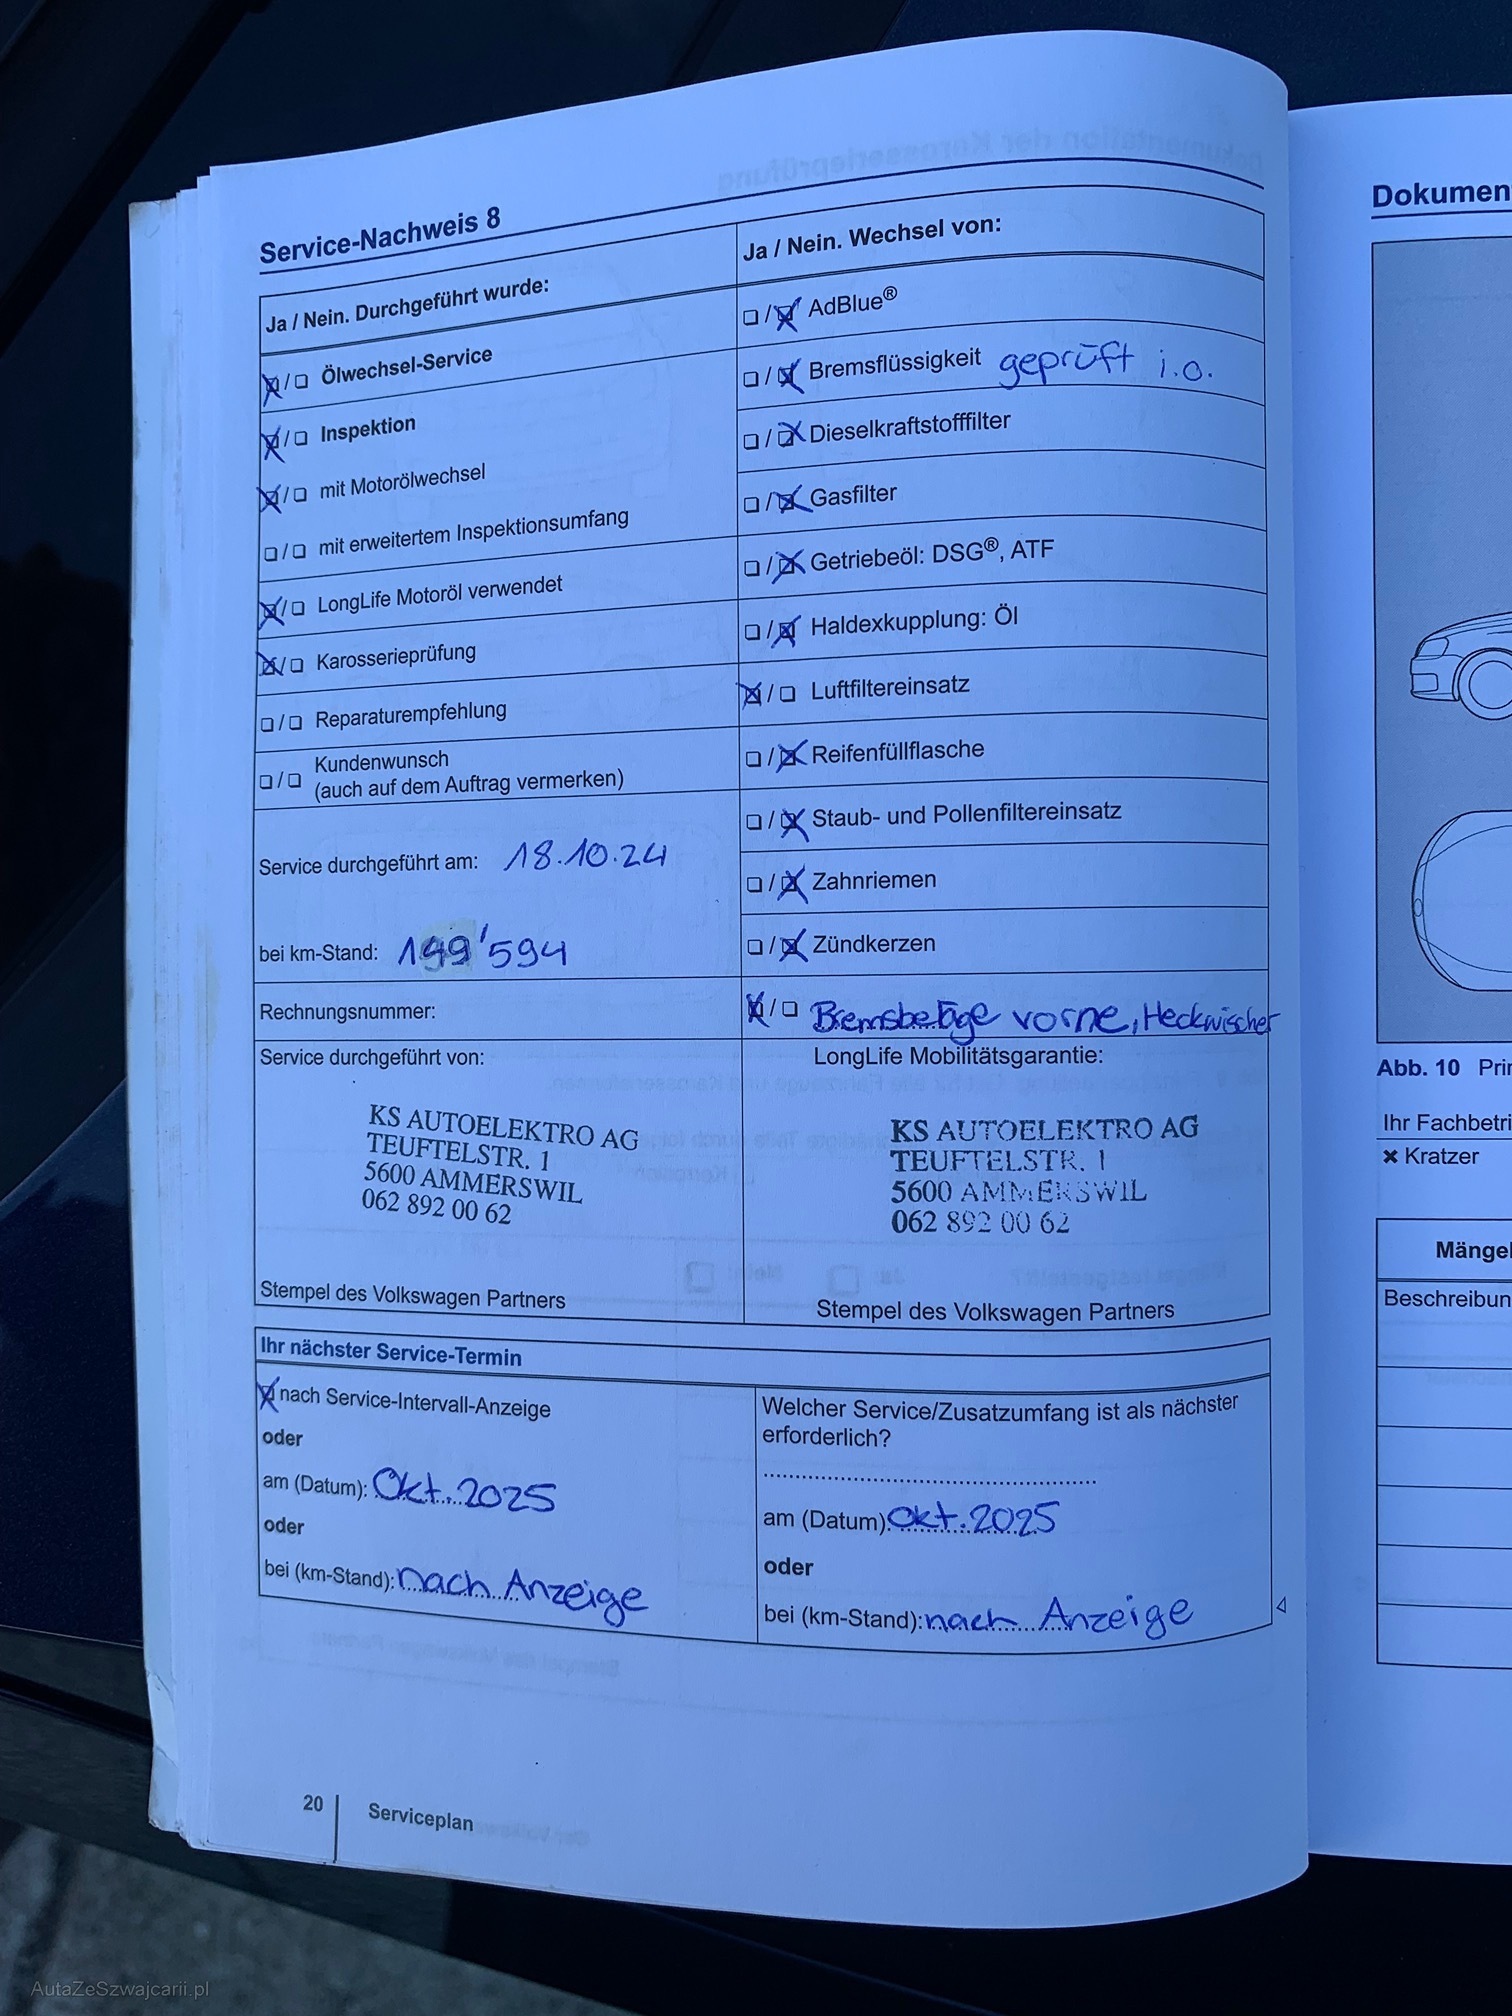 Service-Nachweis 8
Ja / Nein. Durchgeführt wurde:
☒/☐ Ölwechsel-Service
☒/☐ Inspektion
☒/☐ mit Motorölwechsel
☐/☐ mit erweitertem Inspektionsumfang
☒/☐ LongLife Motoröl verwendet
☒/☐ Karosserieprüfung
☐/☐ Reparaturempfehlung
☐/☐ Kundenwunsch
(auch auf dem Auftrag vermerken)
Service durchgeführt am: 18.10.24
bei km-Stand: 199'594
Rechnungsnummer:
Service durchgeführt von:
KS AUTOELEKTRO AG
TEUFTELSTR. 1
5600 AMMERSWIL
062 892 00 62
Stempel des Volkswagen Partners
Ja / Nein. Wechsel von:
☐/☒ AdBlue®
☐/☒ Bremsflüssigkeit geprüft i.o.
☐/☒ Dieselkraftstofffilter
☐/☒ Gasfilter
☐/☒ Getriebeöl: DSG®, ATF
☐/☒ Haldexkupplung: Öl
☒/☐ Luftfiltereinsatz
☐/☒ Reifenfüllflasche
☐/☒ Staub- und Pollenfiltereinsatz
☐/☒ Zahnriemen
☐/☒ Zündkerzen
☒/☐ Bremsbeläge vorne, Heckwischer
LongLife Mobilitätsgarantie:
KS AUTOELEKTRO AG
TEUFTELSTR. 1
5600 AMMERSWIL
062 892 00 62
Stempel des Volkswagen Partners
Ihr nächster Service-Termin
☒ nach Service-Intervall-Anzeige
oder
am (Datum): Okt. 2025
oder
bei (km-Stand): nach Anzeige
Welcher Service/Zusatzumfang ist als nächster
erforderlich?
am (Datum): Okt. 2025
oder
bei (km-Stand): nach Anzeige
20 Serviceplan
Dokumen
Abb. 10 Prin
Ihr Fachbetri
✖ Kratzer
Mängel
Beschreibun
AutaZeSzwajcarii.pl